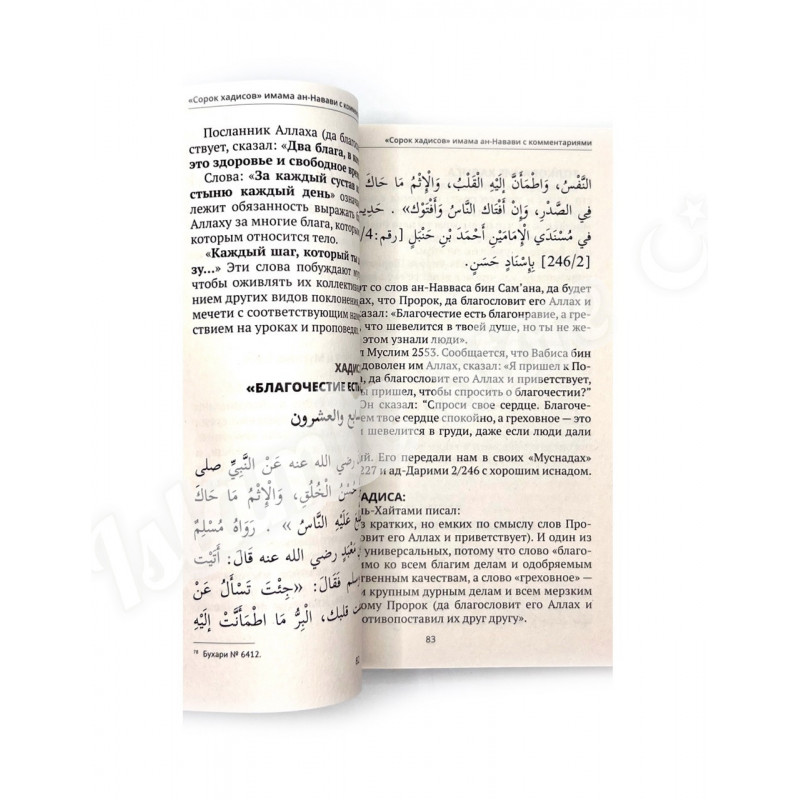 «Сорок хадисов» имама ан-Навави с комм
Посланник Аллаха (да благо
ствует, сказал: «Два блага, в
это здоровье и свободное вре
Слова: «За каждый сустав
стыню каждый день» озна
лежит обязанность выражать
Аллаху за многие блага, котор
которым относится тело.
«Каждый шаг, который ты
зу...» Эти слова побуждают
чтобы оживлять их коллектив
нием других видов поклонени
мечети с соответствующим на
ствием на уроках и проповед
ХАДИС
«БЛАГОЧЕСТИЕ ЕСТЬ
ابع والعشرون
رضي الله عنه عَنْ النَّبِيِّ صلى
حُسْنُ الْخُلُقِ، وَالْإِثْمُ مَا حَاكَ
عَلَيْهِ النَّاسُ» . رَوَاهُ مُسْلِمٌ
مَعْبَدٍ رضي الله عنه قَالَ: أَتَيْت
سلم فَقَالَ: «جِئْتَ تَسْأَلُ عَنْ
ت قلبك، الْبِرُّ مَا اطْمَأَنَّتْ إلَيْهِ
78 Бухари № 6412.
«Сорок хадисов» имама ан-Навави с комментариями
النَّفْسُ، وَاطْمَأَنَّ إلَيْهِ الْقَلْبُ، وَالْإِثْمُ مَا حَاكَ
فِي الصَّدْرِ، وَإِنْ أَفْتَاك النَّاسُ وَأَفْتَوْك» . حَدِي
فِي مُسْنَدَي الْإِمَامَيْنِ أَحْمَدَ بْنِ حَنْبَلٍ [رقم:4/
[246/2] بِإِسْنَادٍ حَسَنٍ.
т со слов ан-Навваса бин Сам'ана, да будет
ах, что Пророк, да благословит его Аллах и
казал: «Благочестие есть благонравие, а гре-
что шевелится в твоей душе, но ты не же-
этом узнали люди».
л Муслим 2553. Сообщается, что Вабиса бин
доволен им Аллах, сказал: «Я пришел к По-
а, да благословит его Аллах и приветствует,
ы пришел, чтобы спросить о благочестии?"
Он сказал: "Спроси свое сердце. Благоче-
ем твое сердце спокойно, а греховное — это
шевелится в груди, даже если люди дали
ий. Его передали нам в своих «Муснадах»
227 и ад-Дарими 2/246 с хорошим иснадом.
АДИСА:
ль-Хайтами писал:
з кратких, но емких по смыслу слов Про-
овит его Аллах и приветствует). И один из
универсальных, потому что слово «благо-
имо ко всем благим делам и одобряемым
твенным качествам, а слово «греховное» —
м крупным дурным делам и всем мерзким
ому Пророк (да благословит его Аллах и
отивопоставил их друг другу».
83